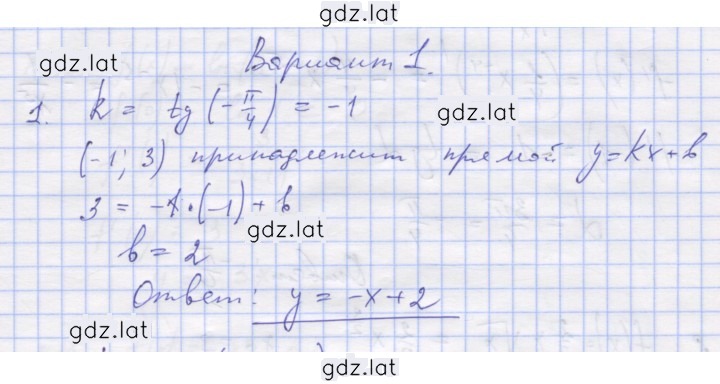 gdz.lat
gdz.lat
Вариант 1.
1. k = tg (-π/4) = -1
gdz.lat
(-1; 3) принадлежит прямой y = kx + b
3 = -1 · (-1) + b
gdz.lat
b = 2
Ответ: y = -x + 2
gdz.lat
gdz.lat